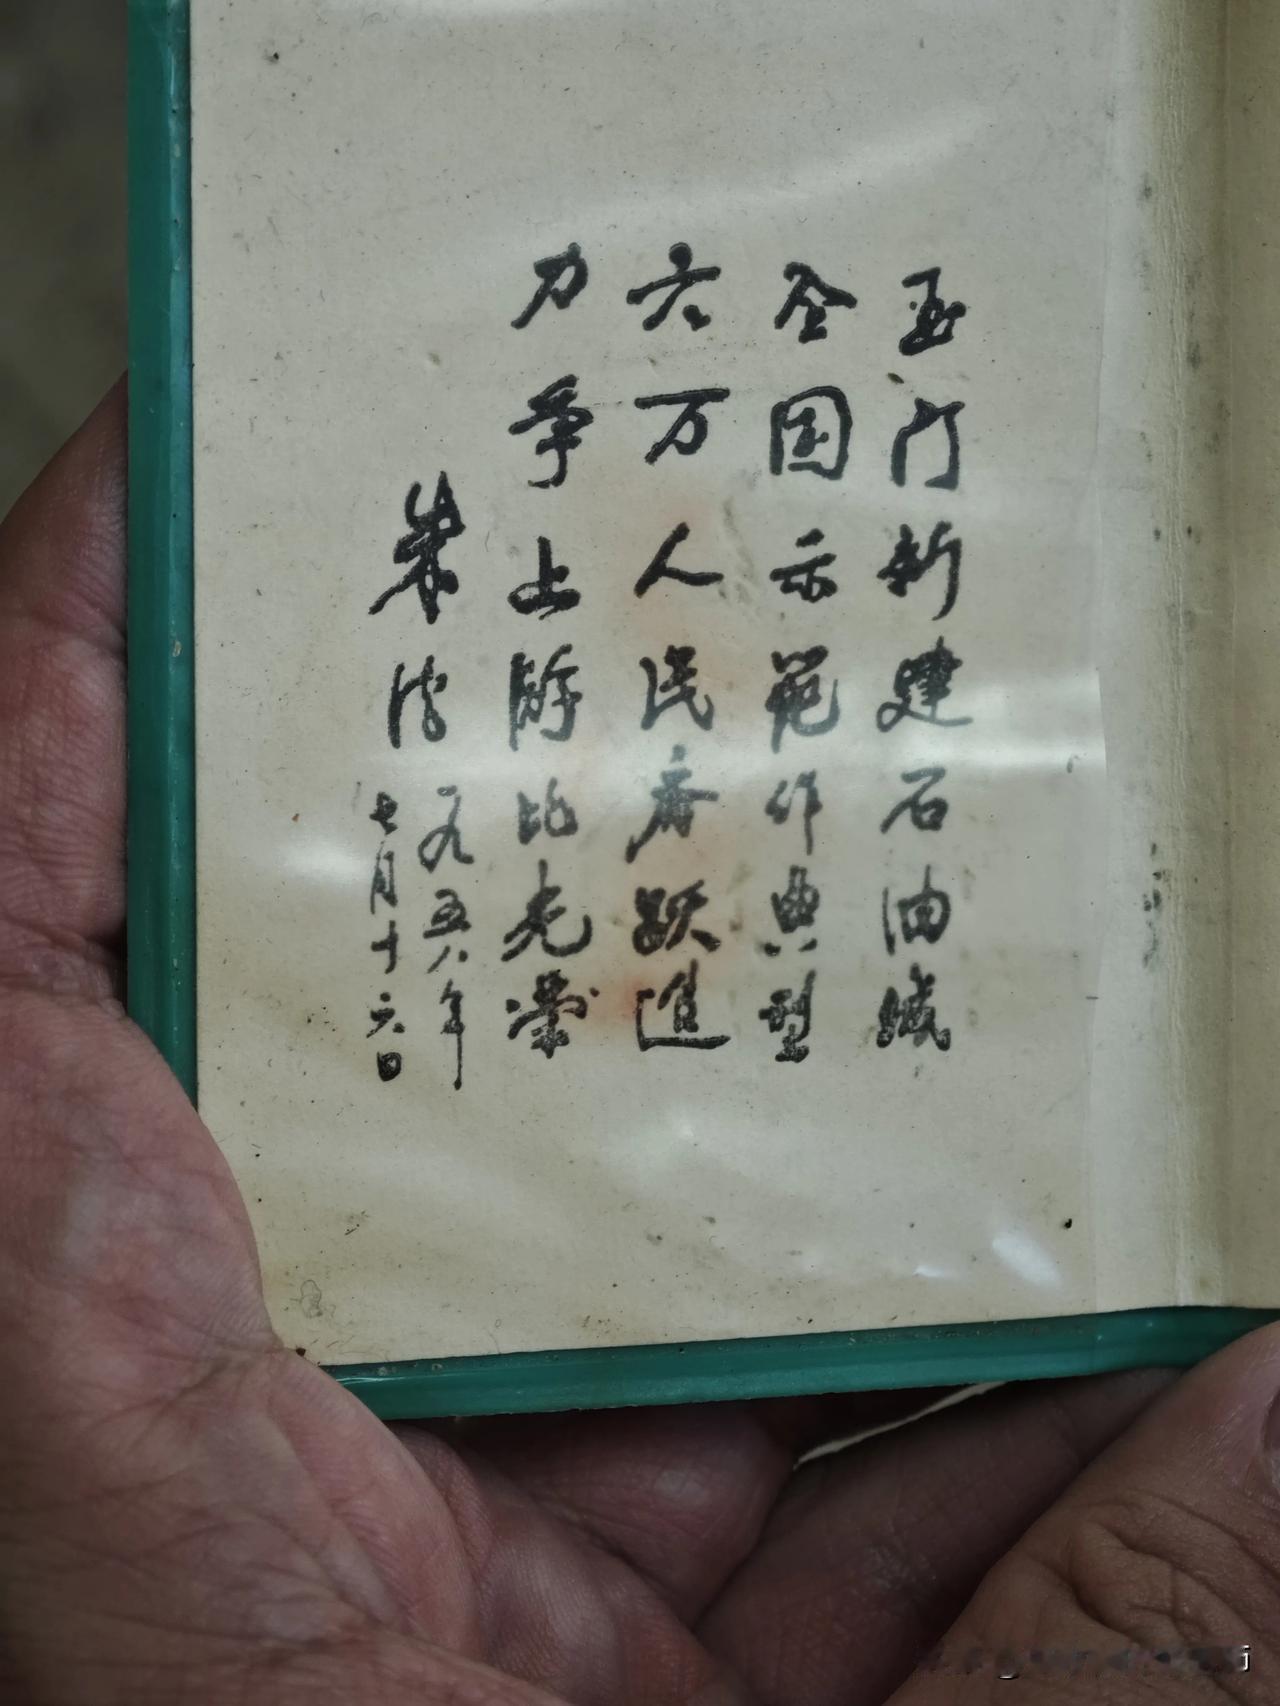 玉门新建石油城
全国示范作典型
六万人民齐跃進
力争上游比光荣
朱德
一九五八年
七月十六日